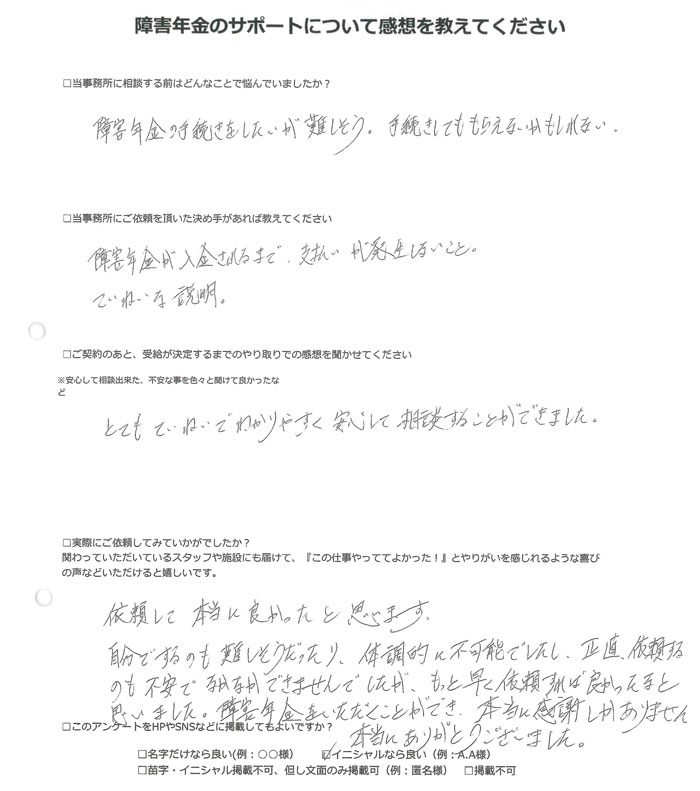 障害年金のサポートについて感想を教えてください
□当事務所に相談する前はどんなことで悩んでいましたか？
障害年金の手続きをしたいが難しそう。手続きしてももらえないかもしれない。
□当事務所にご依頼を頂いた決め手があれば教えてください
障害年金が入金されるまで、支払いが発生しないこと。
ていねいな説明。
□ご契約のあと、受給が決定するまでのやり取りでの感想を聞かせてください
※安心して相談出来た、不安な事を色々と聞けて良かったな
ど
とてもていねいでわかりやすく安心して相談することができました。
□実際にご依頼してみていかがでしたか？
関わっていただいているスタッフや施設にも届けて、『この仕事やっててよかった！』とやりがいを感じれるような喜び
の声などいただけると嬉しいです。
依頼して本当に良かったと思います。
自分でするのも難しそうだったり、体調的に不可能でしたし、正直、依頼する
のも不安でなかなかできませんでしたが、もっと早く依頼すれば良かったなと
思いました。障害年金をいただくことができ、本当に感謝しかありません
□このアンケートをHPやSNSなどに掲載してもよいですか？
本当にありがとうございました。
□名字だけなら良い(例：○○様） ☑イニシャルなら良い（例：A.A様）
□苗字・イニシャル掲載不可、但し文面のみ掲載可（例：匿名様） □掲載不可